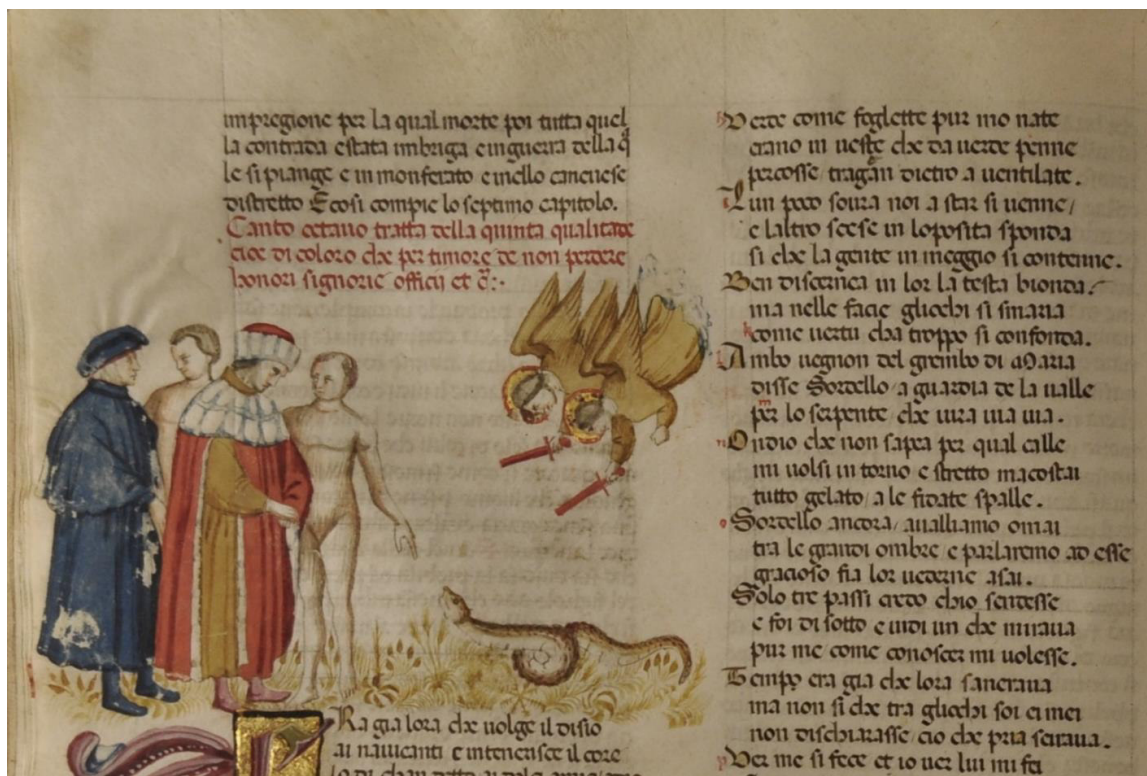 impregione per la qual morte poi tutta quel
la contrada e stata imbriga e inguerra della q̄
le si piange e in monferato e inello caneuese
distretto E cosi compie lo septimo capitolo.
Canto octauo tratta della quinta qualitade
cioe di coloro che per timore de non perdere
honori signorie officii et c̄:·
Ra gia lora che uolge il disio
ai nauicanti e intenerisce il core
lo di chan detto ai dolci amici
Verde come foglette pur mo nate
erano in ueste che da uerde penne
percosse tragean dietro a uentilate.
Lun poco soura noi a star si uenne/
e laltro scese in loposita sponda
si che la gente in meggio si contenne.
Ben discernea in lor la testa bionda/
ma nelle facie gliochi si smaria
come uertu cha troppo si confonda.
Ambo uegnon del grembo di Maria
disse Sordello/ a guardia de la ualle
per lo serpente che uira uia uia.
Ondio che non sapea per qual calle
mi uolsi in torno e stretto macostai
tutto gelato/ a le fidate spalle.
Sordello ancora/ aualliamo omai
tra le grandi ombre e parlaremo ad esse
gracioso fia lor uederne asai.
Solo tre passi credo chio scendesse
e foi di sotto e uidi un che miraua
pur me come conoscer mi uolesse.
Tempo era gia che lora saneraua
ma non si che tra gliochi soi e i mei
non dischiarasse/ cio che pria serraua.
Ver me si fece et io uer lui mi fei